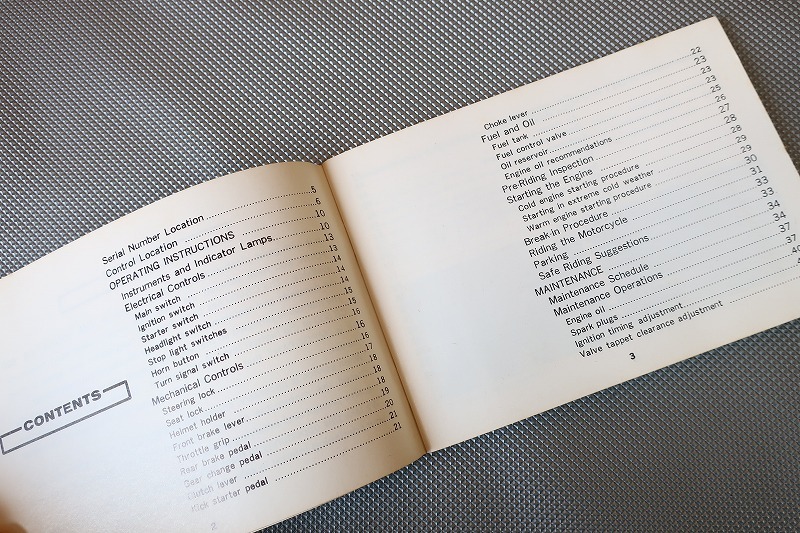 CONTENTS
Serial Number Location 5
Control Location 6
OPERATING INSTRUCTIONS 10
Instruments and Indicator Lamps 10
Electrical Controls 13
Main switch 13
Ignition switch 14
Starter switch 14
Headlight switch 14
Stop light switches 15
Horn button 15
Turn signal switch 16
Mechanical Controls 16
Steering lock 17
Seat lock 18
Helmet holder 18
Front brake lever 18
Throttle grip 19
Rear brake pedal 20
Gear change pedal 21
Clutch lever 21
Kick starter pedal
2
Choke lever 22
Fuel and Oil 23
Fuel tank 23
Fuel control valve 23
Oil reservoir 25
Engine oil recommendations 26
Pre-Riding Inspection 27
Starting the Engine 28
Cold engine starting procedure 28
Starting in extreme cold weather 29
Warm engine starting procedure 29
Break-in Procedure 30
Riding the Motorcycle 31
Parking 33
Safe Riding Suggestions 33
MAINTENANCE 34
Maintenance Schedule 34
Maintenance Operations 37
Engine oil 37
Spark plugs
Ignition timing adjustment
Valve tappet clearance adjustment
3